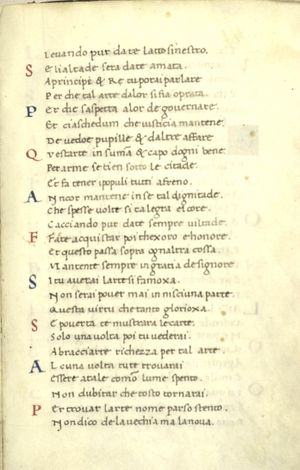 Levando pur da te latto sinestro.
S e lialtade sera da te amata.
A principi & Re tu porai parlare
P er che tal arte da lor si fia oprata.
P er che saspetta a lor de governare.
Et ciaschedum che iusticia mantene.
De vedoe pupille & daltre affare
Q vestarte in suma & capo dogni bene.
Per arme se tien sotto le citade.
Et fa tener i populi tutti afreno.
A Ncor mantene in se tal dignitade.
Che spesse volte si talegra el core.
C acciando pur da te sempre viltade.
F a te acquistar poi thexoro e honore.
Et questo passa sopra ognaltra cossa.
M antente sempre in gratia de signore
S i tu averai larte si famoxa.
Non serai pover mai in nisciuna parte.
Questa virtu che tanto glorioxa.
S e poverta te mustrara le carte.
Solo una volta poi tu vederai.
Abracciarte richezza per tal arte
A L cuna volta tu te trovarai
Essere a tale como lume spento.
Non dubitar che tosto tornarai.
P Er trovar larte nome parso stento.
Non dico de la vechia ma la nova.